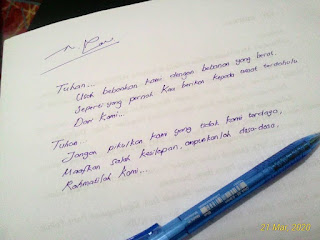 Tuhan...
Usah bebankan kami dengan bebanan yang berat.
Seperti yang pernah Kau berikan kepada umat terdahulu
Dari Kami...
Tuhan
Jangan pikulkan kami yang tidak kami terdaya,
Maafkan salah kesilapan, ampunkanlah dosa-dosa,
Rahmatilah Kami...
21 Mar, 2020